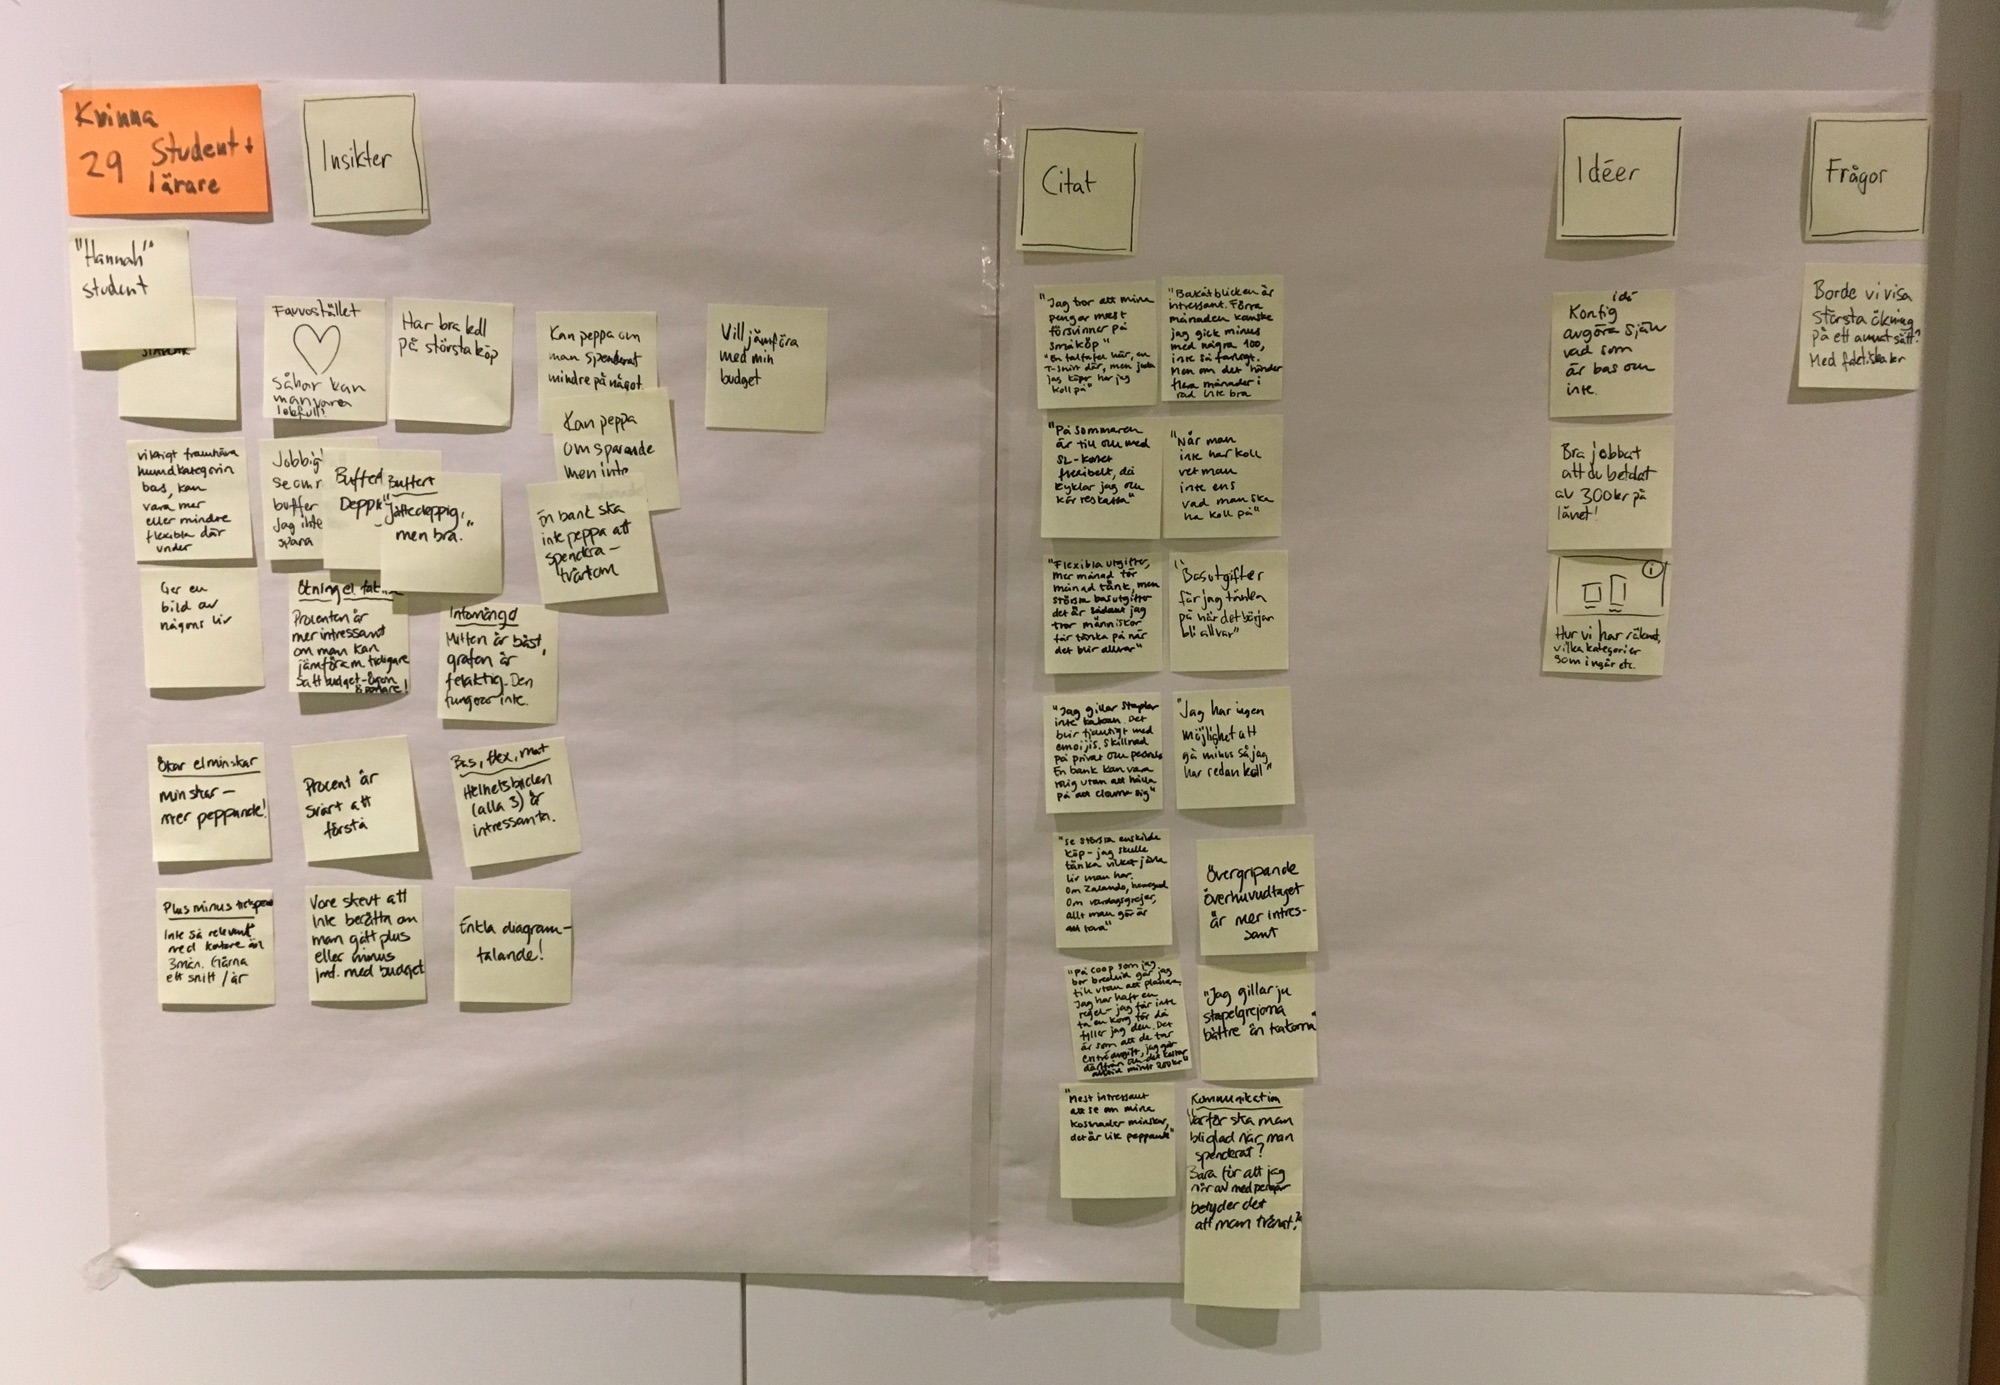 Kvinna
29 Student +
lärare
"Hannah"
student
Insikter
Favvostället
såhär kan
man vara
Har bra koll
på största köp
Kan peppa om
man spenderat
mindre på något
Kan peppa
om sparande
men inte
En bank ska
inte peppa att
spendera –
tvärtom
Vill jämföra
med min
budget
viktigt framhäva
huvudkategorin
bas, kan
vara mer
eller mindre
flexibla där
under
Jobbig
se om
buffer
jag inte
spara
Buffert
Depp
Buffert
"Jättedeppig,
men bra."
Ger en
bild av
någons liv
Ökning el
Procenten är
mer intressant
om man kan
jämföra m. tidigare
satt budget -
Infomängd
Mitten är bäst,
grafen är
felaktig. Den
fungerar inte.
Ökar el minskar
minskar –
mer peppande!
Procent är
svårt att
förstå
Bas, flex, mat
Helhetsbilden
(alla 3) är
intressanta.
Plus minus
Inte så relevant
med kortare än
3 mån. Gärna
ett snitt / år
Vore skevt att
inte berätta om
man gått plus
eller minus
jmf. med budget
Enkla diagram –
talande!
Citat
"Jag tror att mina
pengar mest
försvinner på
småköp"
"En falafel här, en
T-shirt där, men
jag köper har jag
koll på"
"Bakåtblicken är
intressant. Förra
månaden kanske
jag gick minus
med några 100,
inte så farligt.
Men om det händer
flera månader i
rad inte bra
"På sommaren
är till och med
SL-kortet
flexibelt, då
cyklar jag och
kör reskassa"
"När man
inte har koll
vet man
inte ens
vad man ska
ha koll på"
"Flexibla utgifter,
mer månad för
månad tänk, men
största basutgifter
det är sådant jag
tror människor
får tänka på när
det blir allvar"
"Basutgifter
får jag tänka
på när det börjar
bli allvar"
"Jag gillar staplar
inte kakan. Det
blir fjantigt med
emojis. Skillnad
på privat och
En bank kan vara
rolig utan att hålla
på att clowna sig"
"Jag har ingen
möjlighet att
gå minus så jag
har redan koll"
"Se största enskilda
köp – jag skulle
tänka vilket jävla
liv man har.
Om Zalando,
Om vardagsgrejer,
allt man gör är
att
Övergripande
överhuvudtaget
är mer intres-
sant
"På coop som jag
bor bredvid går jag
till utan att planera.
Jag har haft en
regel – jag får inte
ta en korg för då
fyller jag den. Det
är som att de tar
entréavgift, jag går
därifrån och det kostar
alltid minst 200 kr"
"Jag gillar ju
stapelgrejorna
bättre än kakorna"
"Mest intressant
att se om mina
kostnader minskar,
det är lik peppande"
Kommunikation
"Varför ska man
bli glad när man
spenderat?
Bara för att jag
av med pengar
betyder det
att man
Idéer
idé
Konfig
avgöra själv
vad som
är bas och
inte.
Bra jobbat
att du betalat
av 300 kr på
lånet!
i
Hur vi har räknat,
vilka kategorier
som ingår etc.
Frågor
Borde vi visa
största ökning
på ett annat sätt?
Med faktiska kr